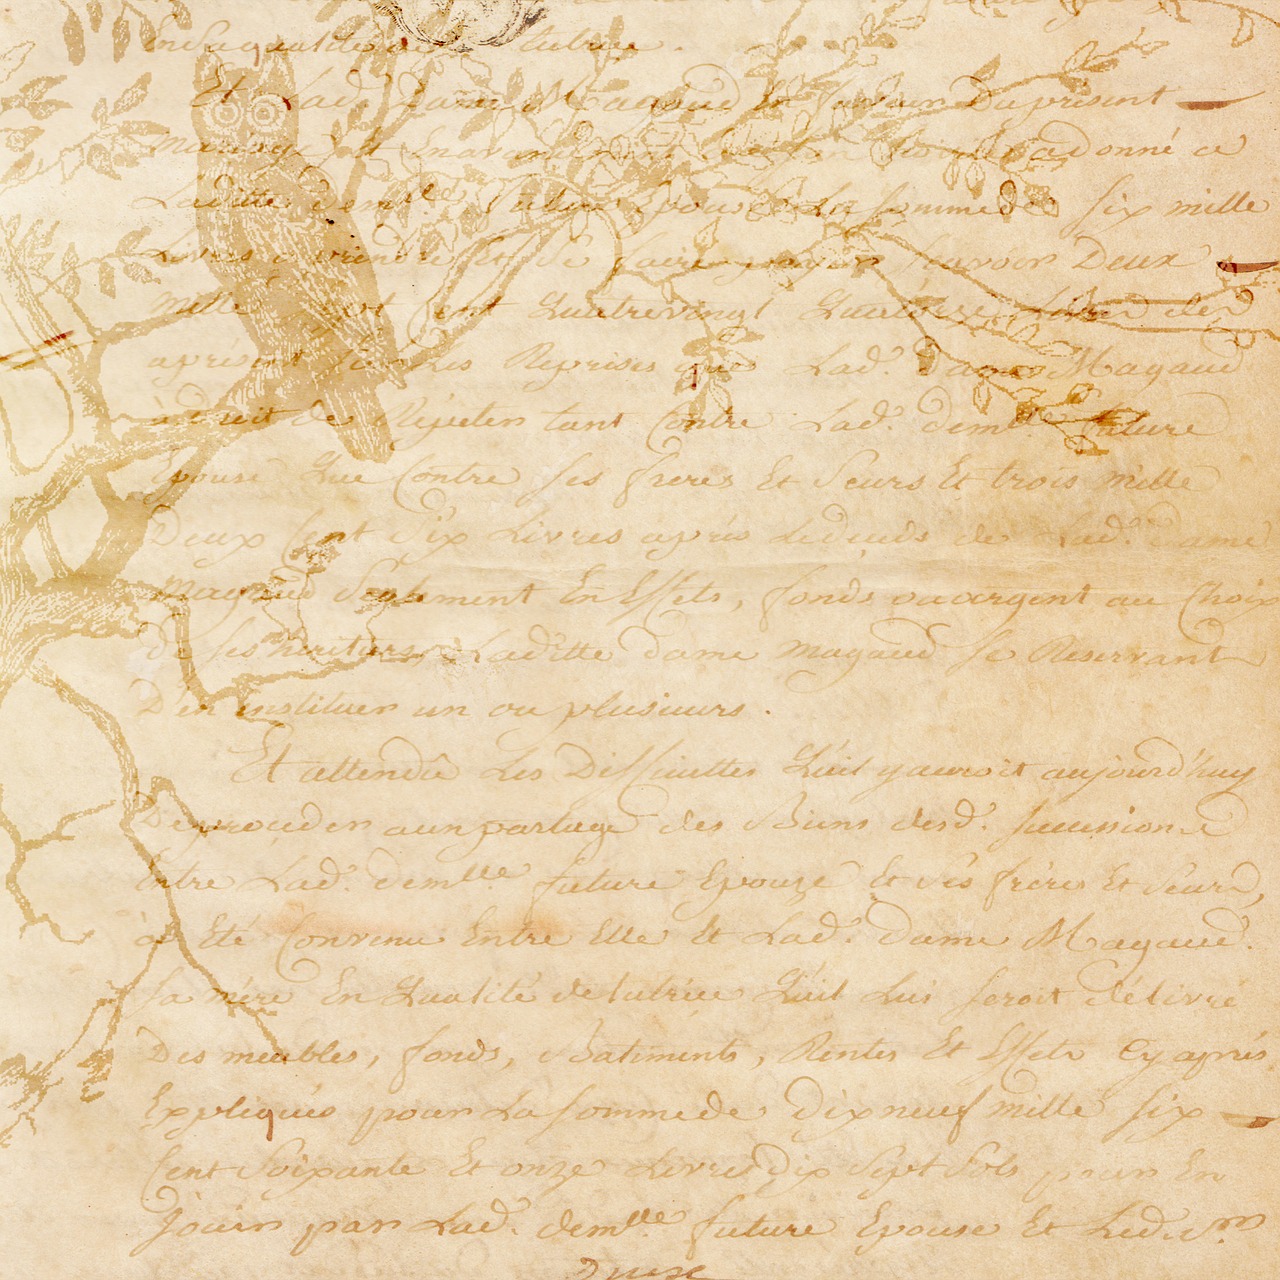 En sa qualité de tutrice .
Et lad. Dame Magaud En faveur Du present
mariage Et En avancement donné a
Laditte dem.lle future Epouse La somme de six mille
Livres a prendre Et Se faire payer sçavoir Deux
mille sept Cent Quatrevingt Quatorze Livres des
aprésent sur Les Reprises que Lad. Dame Magaud
à droit de Répeter tant Contre Lad. dem.lle future
Epouse Que Contre ses freres Et Seurs Et trois mille
Deux Cent Six Livres après Le deceds de Lad. Dame
Magaud Seulement En Effets, fonds ou argent au Choix
De ses heritiers Laditte dame magaud se Reservant
D'en instituer un ou plusieurs .
Et attendû Les Difficultes Qu'il y auroit aujourd'huy
De proceder a un partage des Biens desd. succession
Entre Lad. dem.lle future Epouze Et ses frères Et Seurs,
à Eté Convenu Entre Elle Et Lad. Dame Magaud.
sa mère En Qualité de tutrice Qu'il Lui seroit délivré
Des meubles, fonds, Batiments, Rentes Et Effets Cy après
Expliqués pour La somme de Dix neuf mille six
Cent Soixante Et onze Livres Dix Sept Sols pour En
Jouir par Lad. dem.lle future Epouse Et Led. S.r